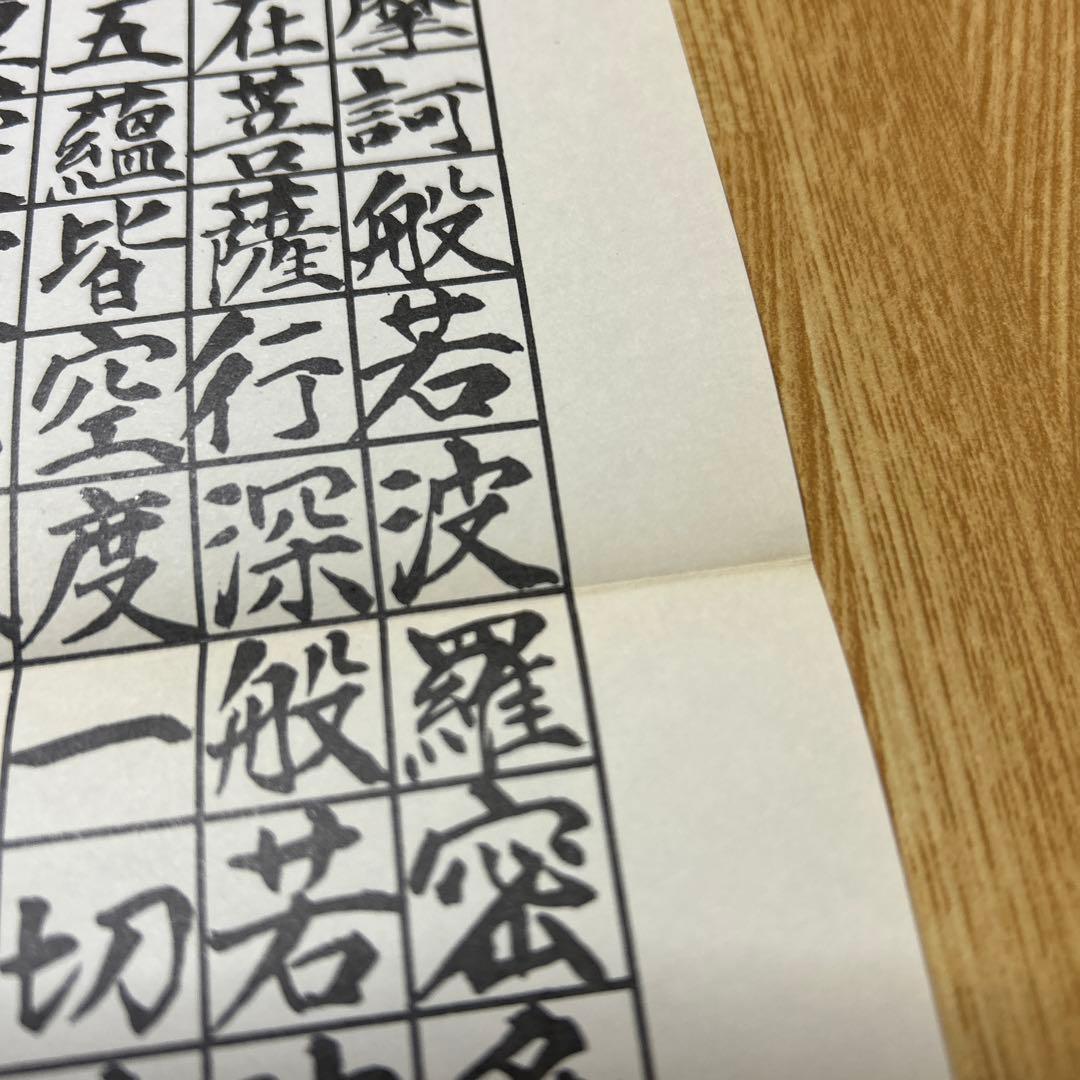 摩訶般若波羅密多
在菩薩行深般若
五蘊皆空度一切